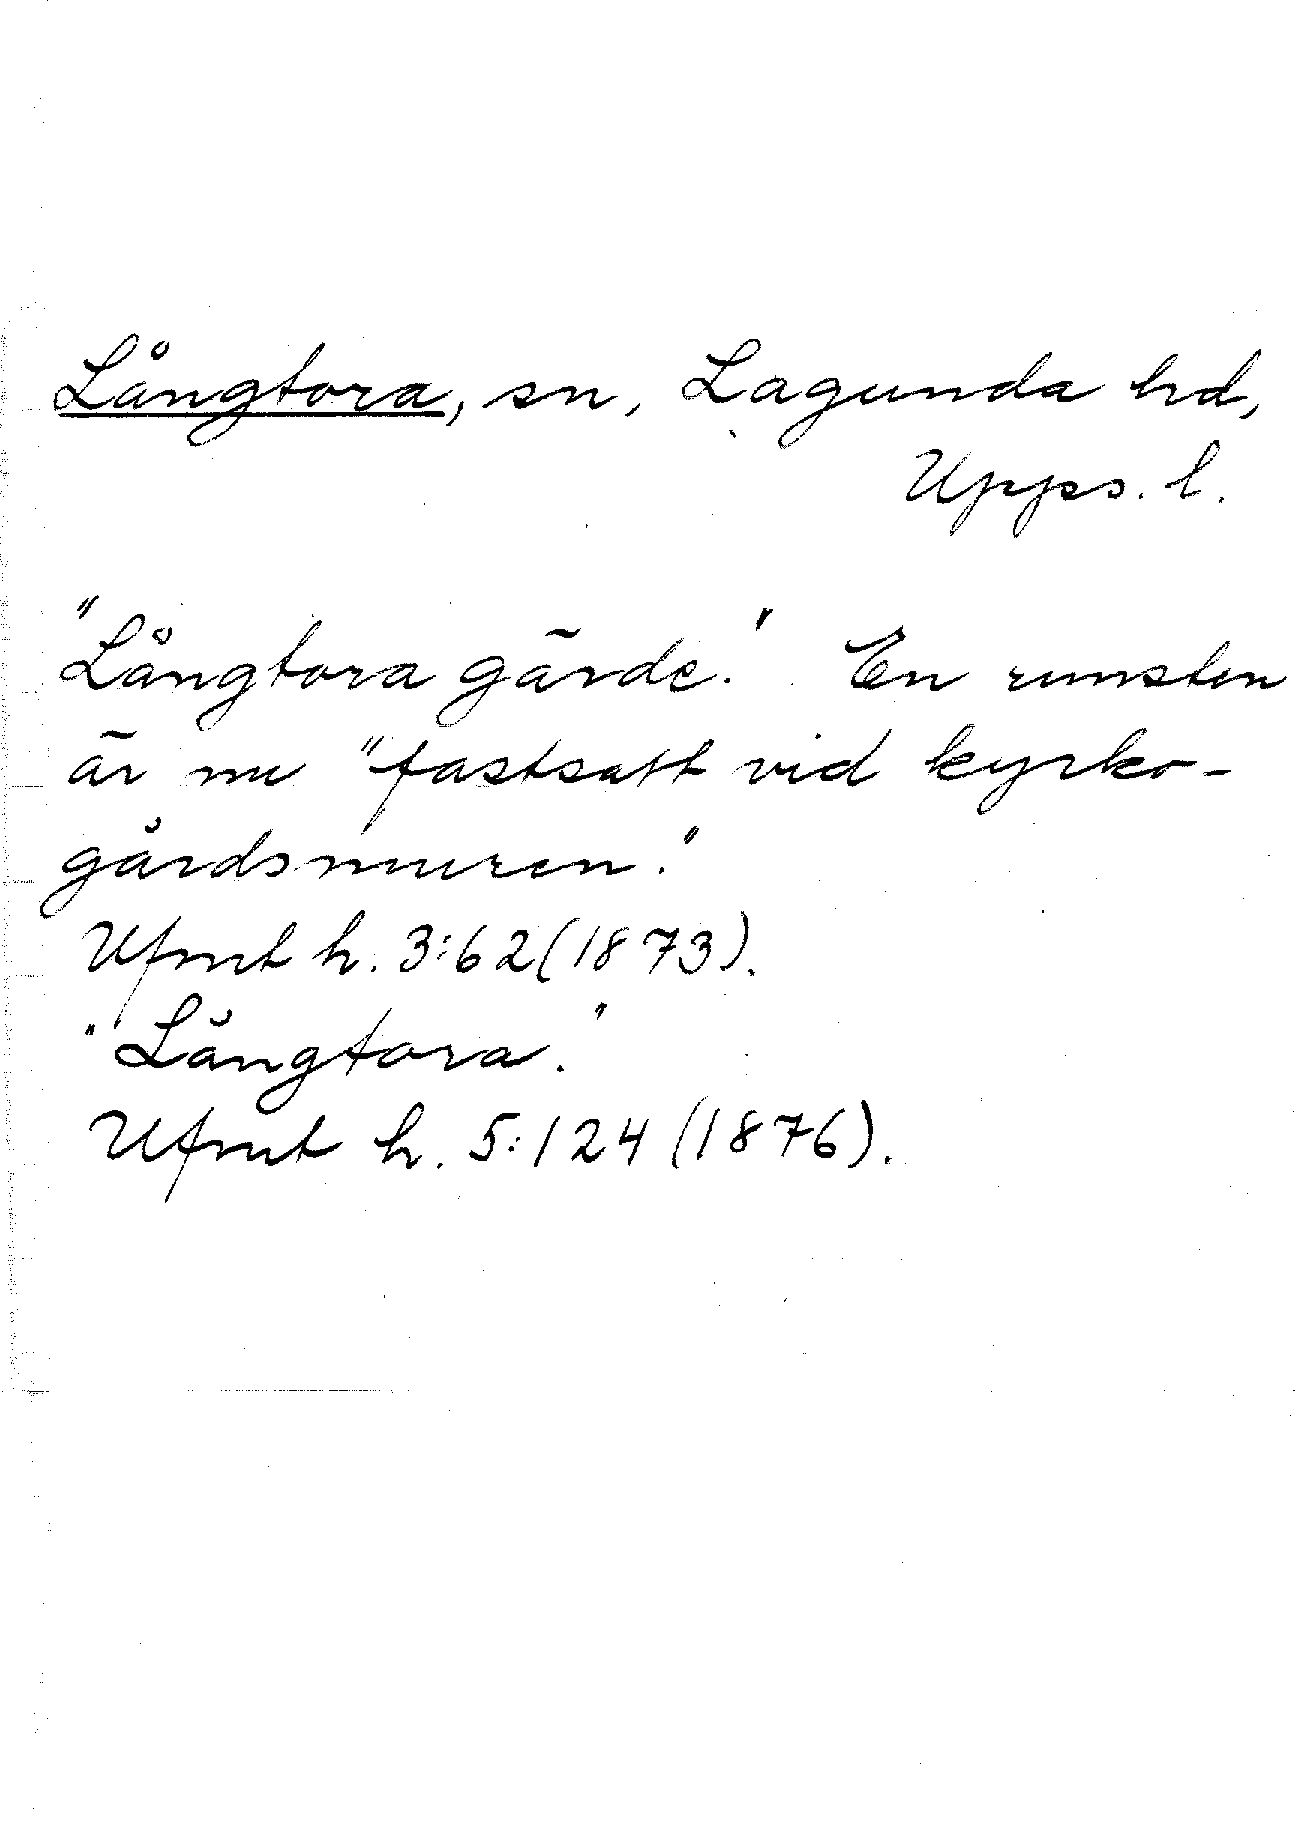 Långtora, sn, Lagunda hd,
Upps. l.
"Långtora gärde." En runsten
är nu "fastsatt vid kyrko-
gårdsmuren."
Ufmt h. 3:62 (1873).
"Långtora."
Ufmt h. 5:124 (1876).